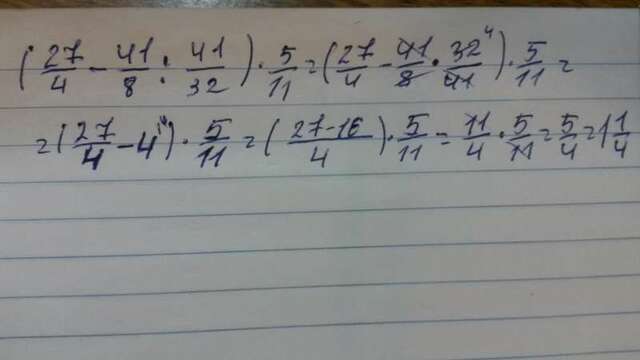 (27/4 - 41/8 : 41/32) · 5/11 = (27/4 - 41/8 · 32⁴/41) · 5/11 =
= (27/4 - 4¹⁴) · 5/11 = (27-16/4) · 5/11 = 11/4 · 5/11 = 5/4 = 1 1/4